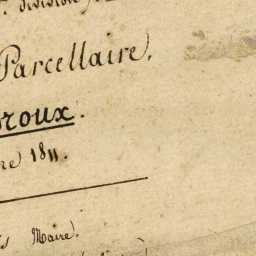 division).
Parcellaire,
roux.
re 1811.
Maire.